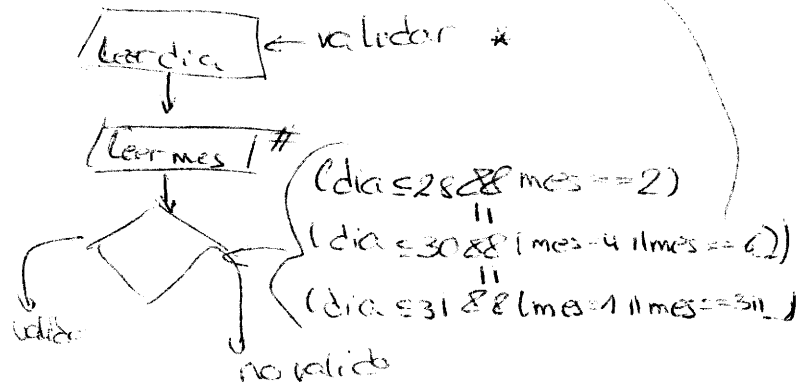 Leer dia ← validar *
Leer mes #
(dia ≤ 28 && mes == 2)
||
(dia ≤ 30 && (mes = 4 || mes == 6))
||
(dia ≤ 31 && (mes = 1 || mes == 3 || _)
valido
no valido